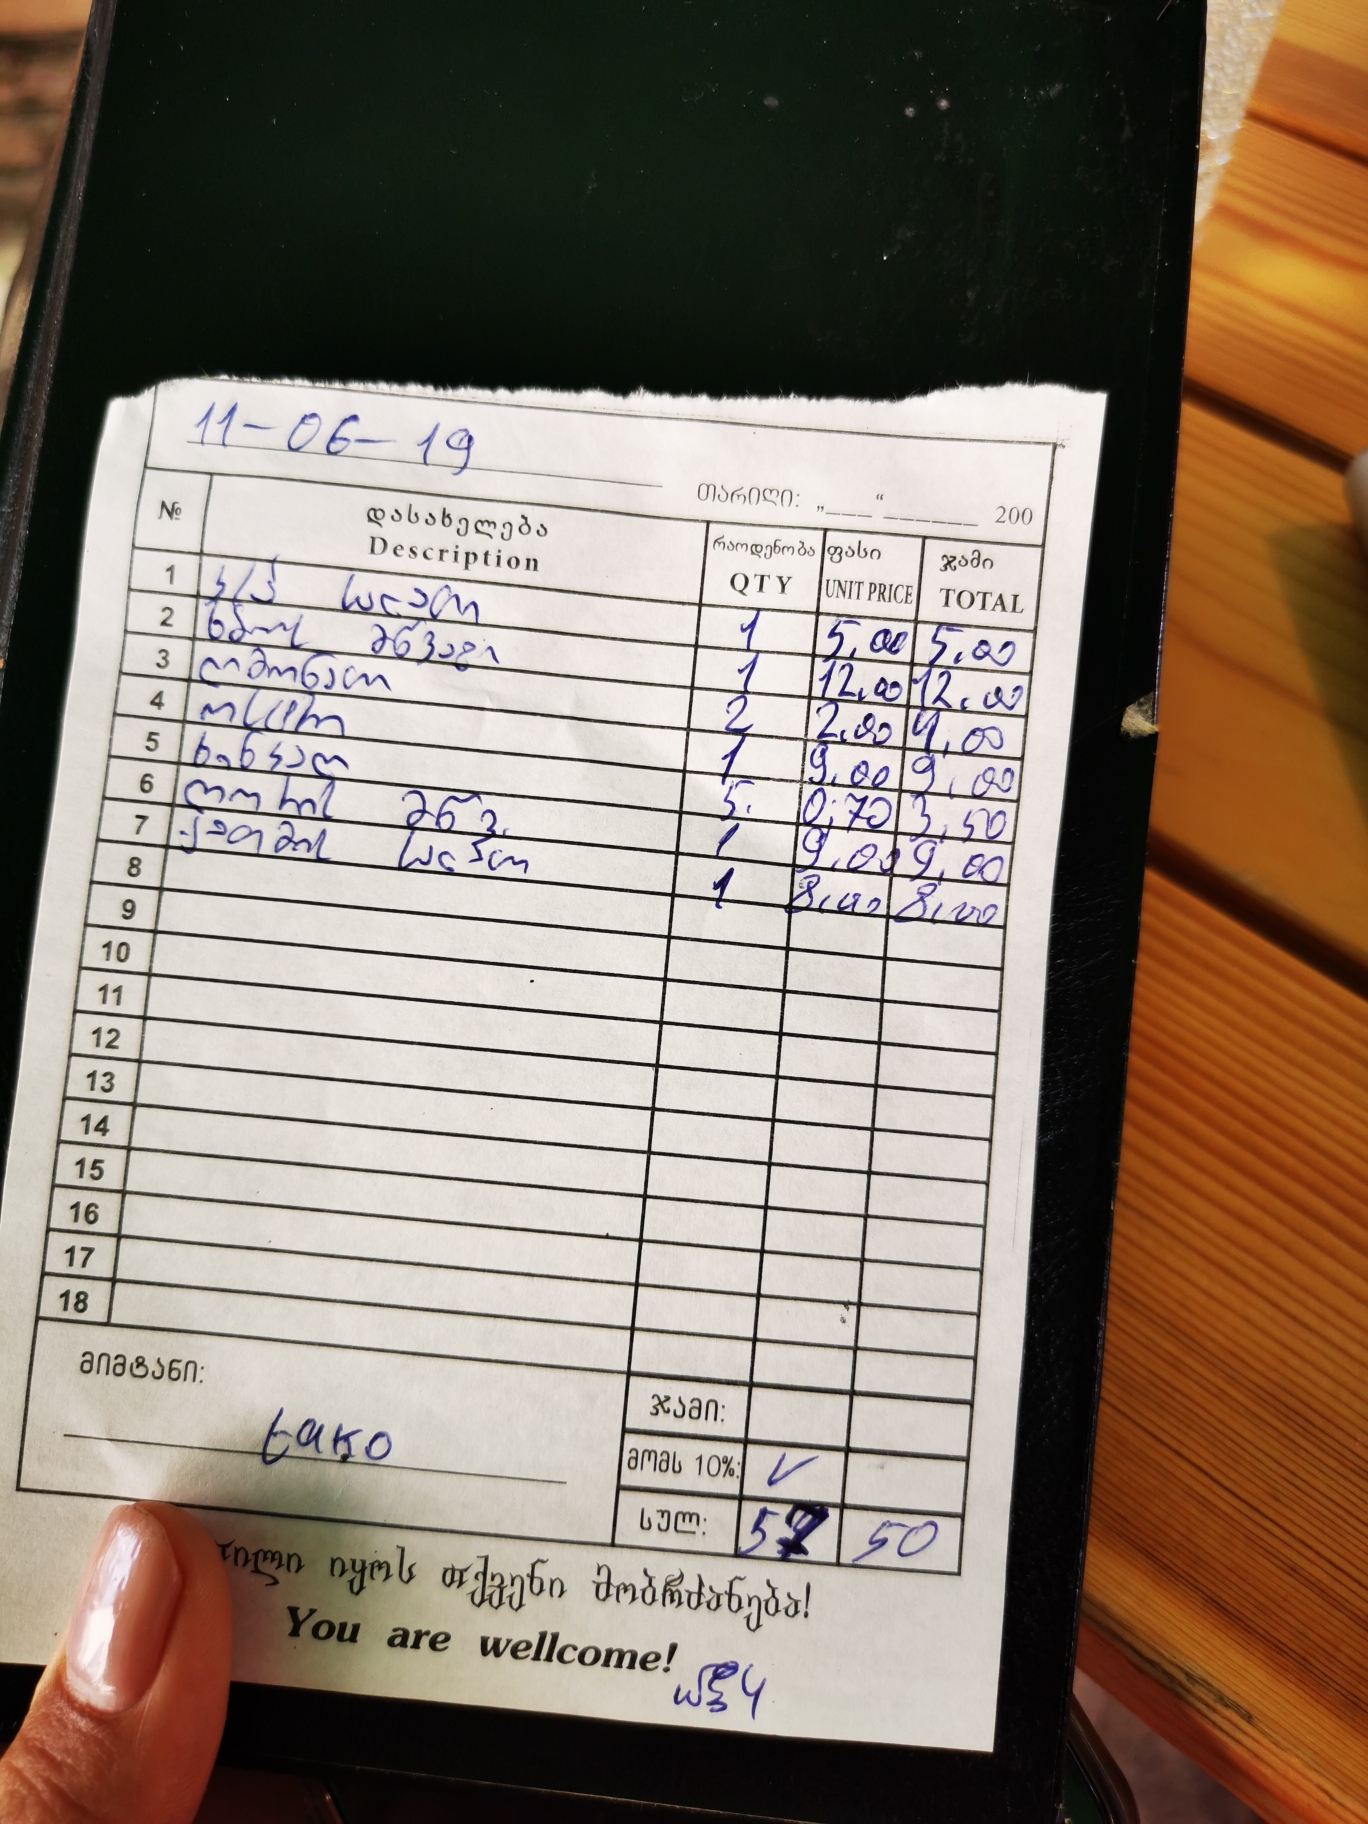 11-06-19
თარიღი: „___“ ______ 200
№ დასახელება Description რაოდენობა QTY ფასი UNIT PRICE ჯამი TOTAL
1 კ/პ სალათი 1 5.00 5.00
2 ხბოს მწვადი 1 12.00 12.00
3 ლიმონათი 2 2.00 4,00
4 ოსტრი 1 9.00 9,00
5 ხინკალი 5. 0,70 3,50
6 ღორის მწვ. 1 9.00 9,00
7 ქათმის სალათი 1 8.00 8,00
8
9
10
11
12
13
14
15
16
17
18
მიმტანი: tako
ჯამი:
მომს 10%: ✓
სულ: 57 50
იყოს თქვენი მობრძანება!
You are wellcome!